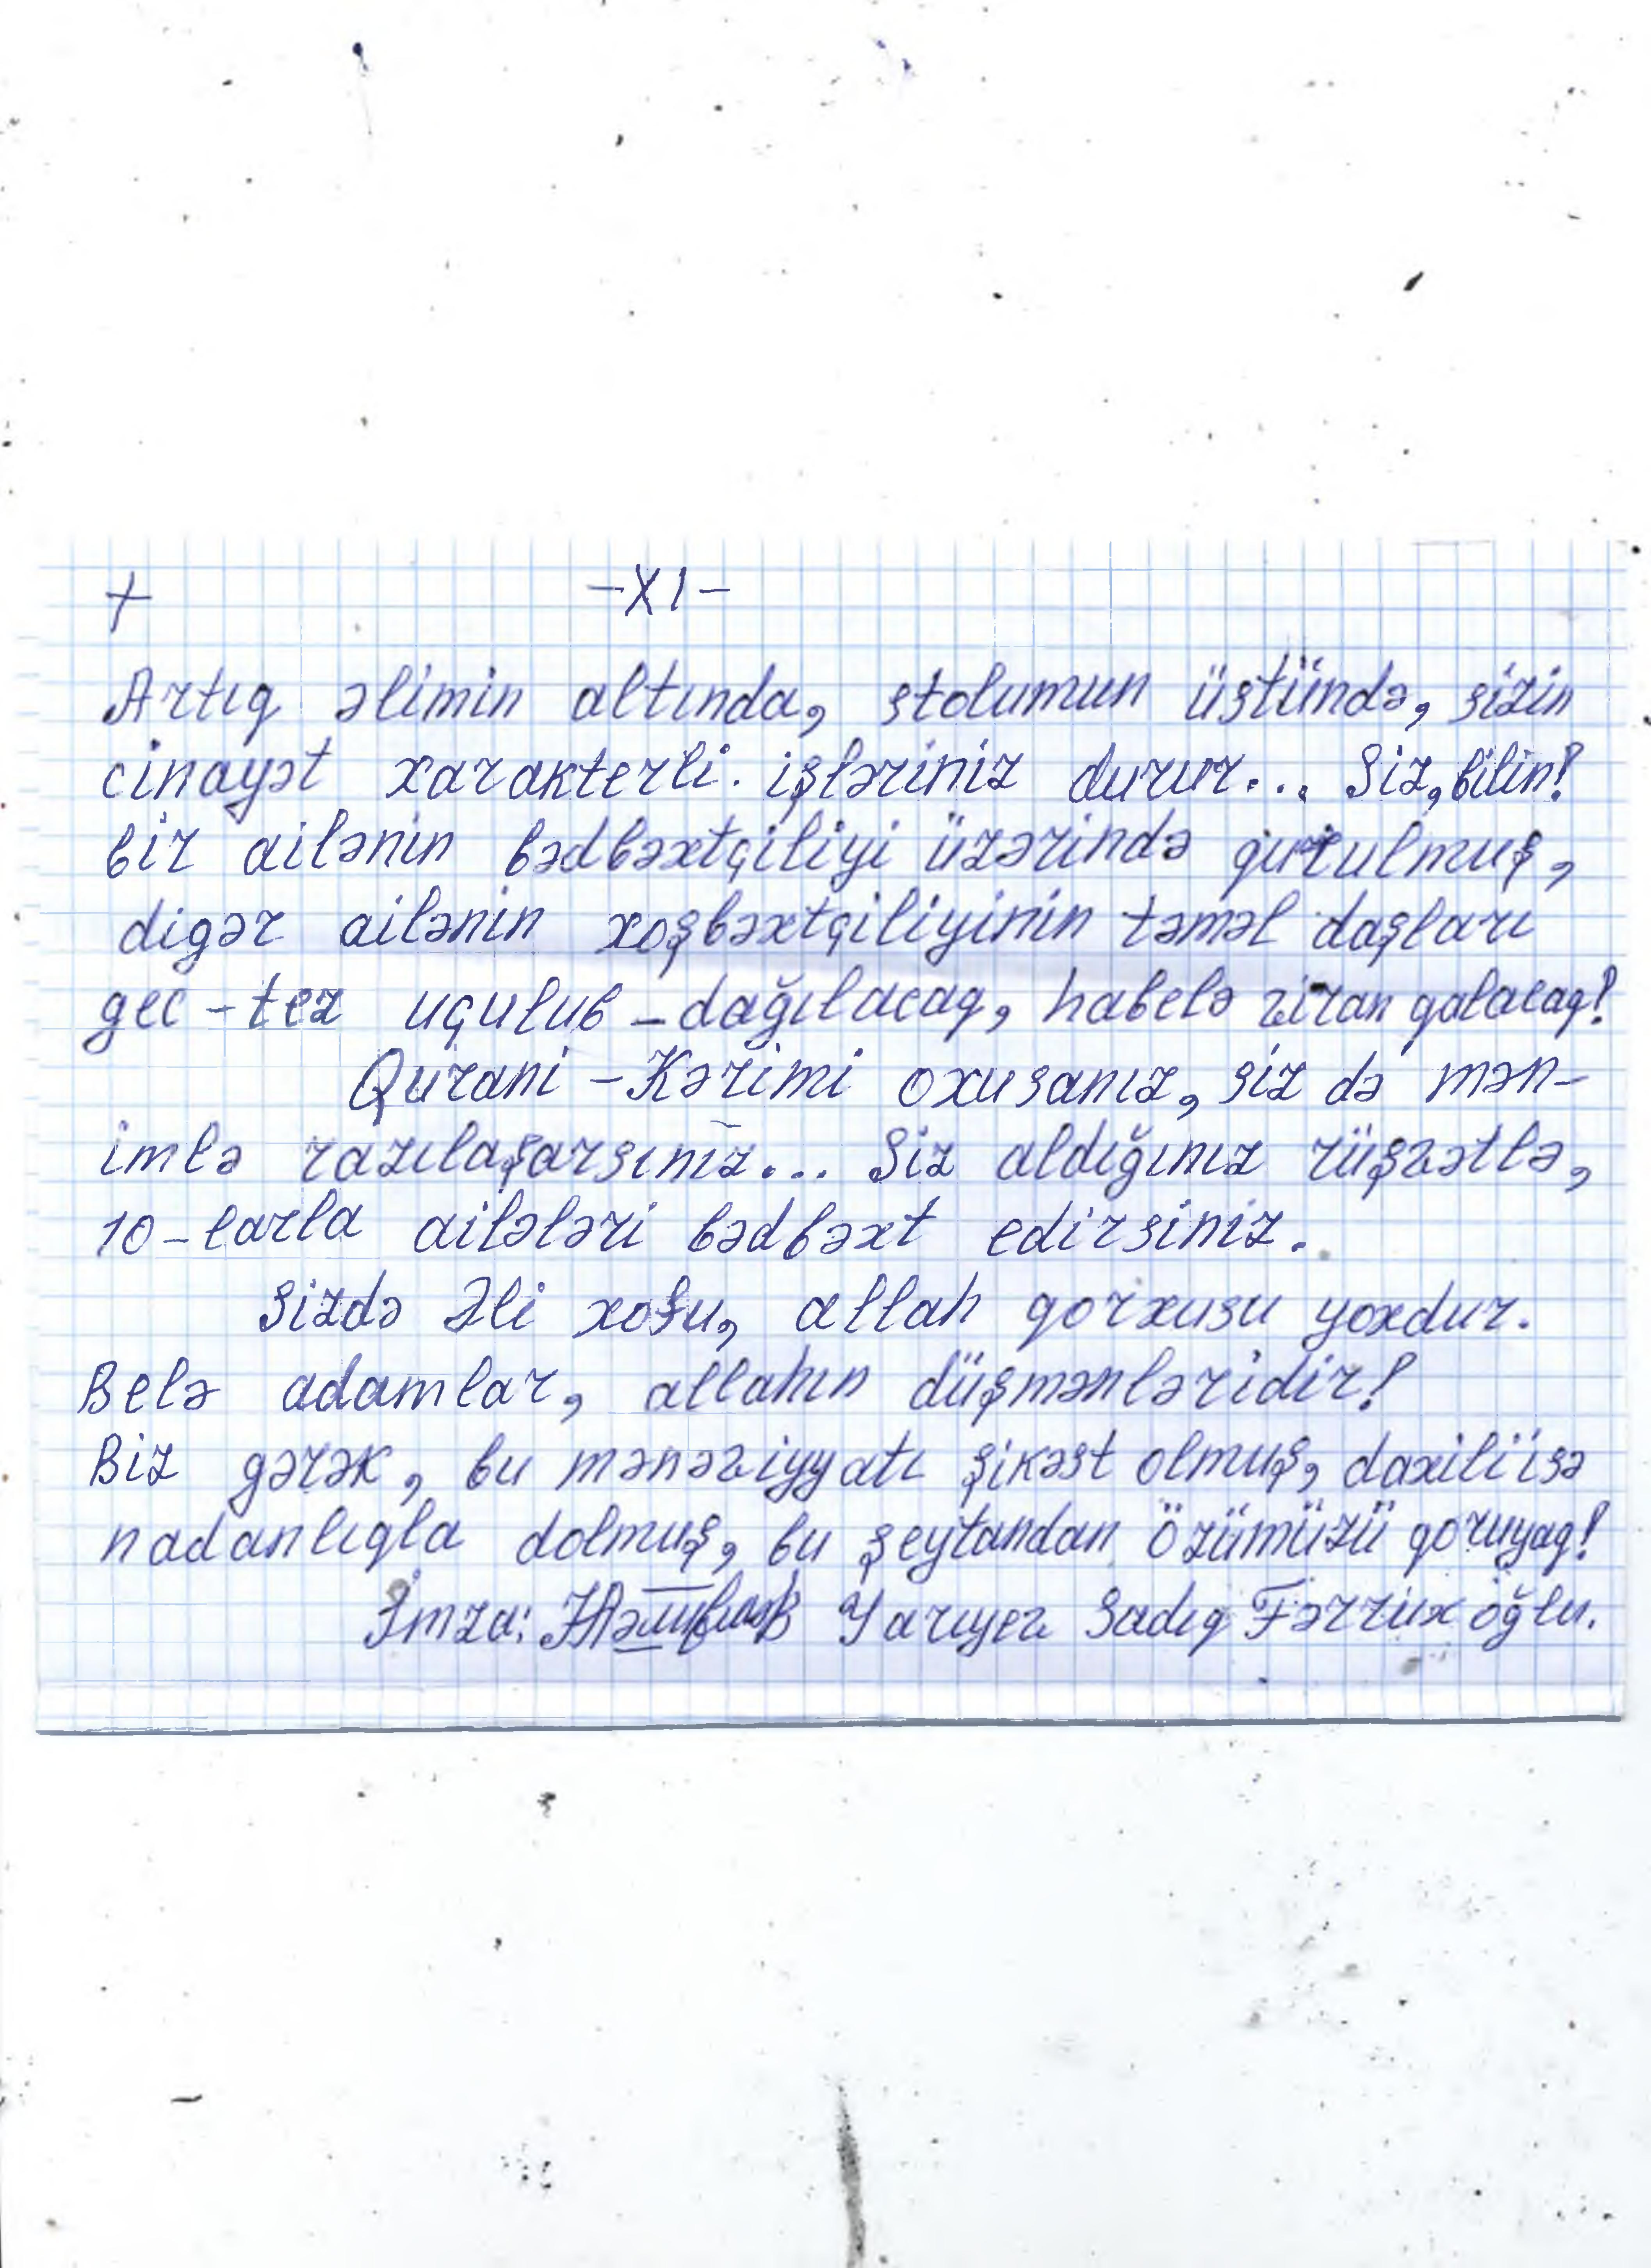 + -XI-
Artıq əlimin altında, stolumun üstündə, sizin
cinayət xarakterli. işləriniz durur... Siz, bilin!
bir ailənin bədbəxtçiliyi üzərində qurulmuş,
digər ailənin xoşbəxtçiliyinin təməl daşları
gec-tez uçulub-dağılacaq, habelə viran qalacaq!
Qurani-Kərimi oxusanız, siz də mən-
imlə razılaşarsınız... Siz aldığınız rüşvətlə,
10-larla ailələri bədbəxt edirsiniz.
Sizdə Əli xofu, allah qorxusu yoxdur.
Belə adamlar, allahın düşmənləridir!
Biz gərək, bu mənəviyyatı şikəst olmuş, daxili isə
nadanlıqla dolmuş, bu şeytandan özümüzü qoruyaq!
İmza: Yarıyev Sadıq Fərrux oğlu.